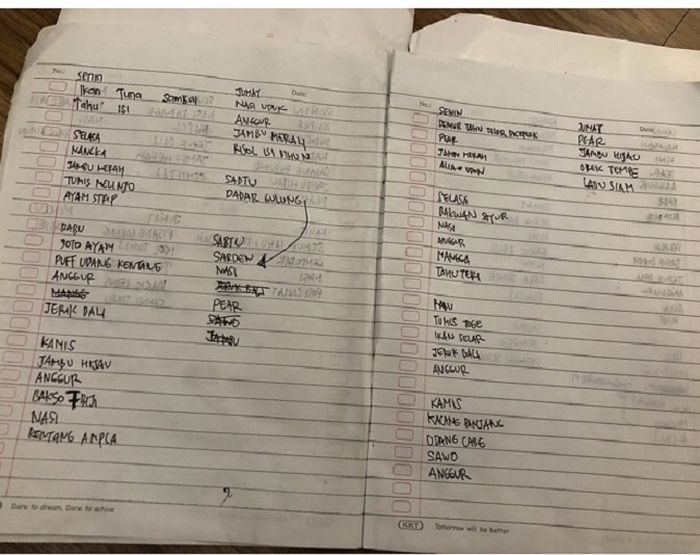 No.:
Senin
Ikan Tuna Sambal
Tahu ISI
SELASA
NANGKA
JAMBU MERAH
TUMIS MELINJO
AYAM STRIP
RABU
SOTO AYAM
PUFF UDANG KENTANG
ANGGUR
JERUK BALI
KAMIS
JAMBU HIJAU
ANGGUR
BAKSO 7 BIJI
NASI
KENTANG AMPLA
Date:
JUMAT
NASI UDUK
ANGGUR
JAMBU MERAH
RISOL ISI BIHUN
SABTU
DADAR GULUNG
SABTU
SARDEN
NASI
JERUK BALI
PEAR
SAWO
JAMBU
2
Dare to dream, Dare to achive
No.:
SENIN
PEAR
JAMBU MERAH
SELASA
BAKWAN SAYUR
NASI
ANGGUR
MANGGA
TAHU TERI
RABU
TUMIS TOGE
IKAN SELAR
JERUK BALI
ANGGUR
KAMIS
KACANG PANJANG
UDANG CABE
SAWO
ANGGUR
Date:
JUMAT
PEAR
JAMBU HIJAU
OREK TEMPE
LABU SIAM
KKY
Tomorrow will be better